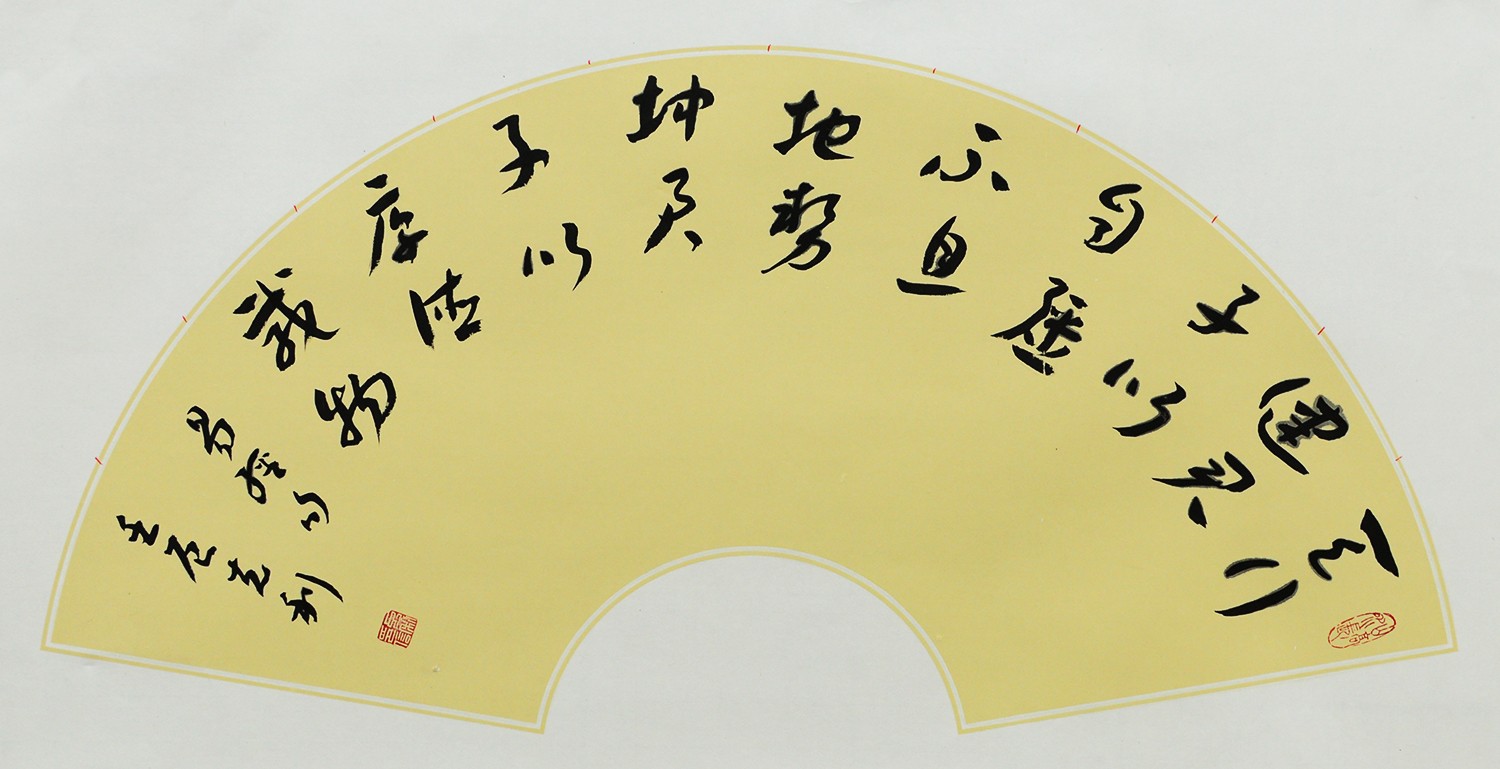 天行
健君
子以
自强
不息
地势
坤君
子以
厚德
载物